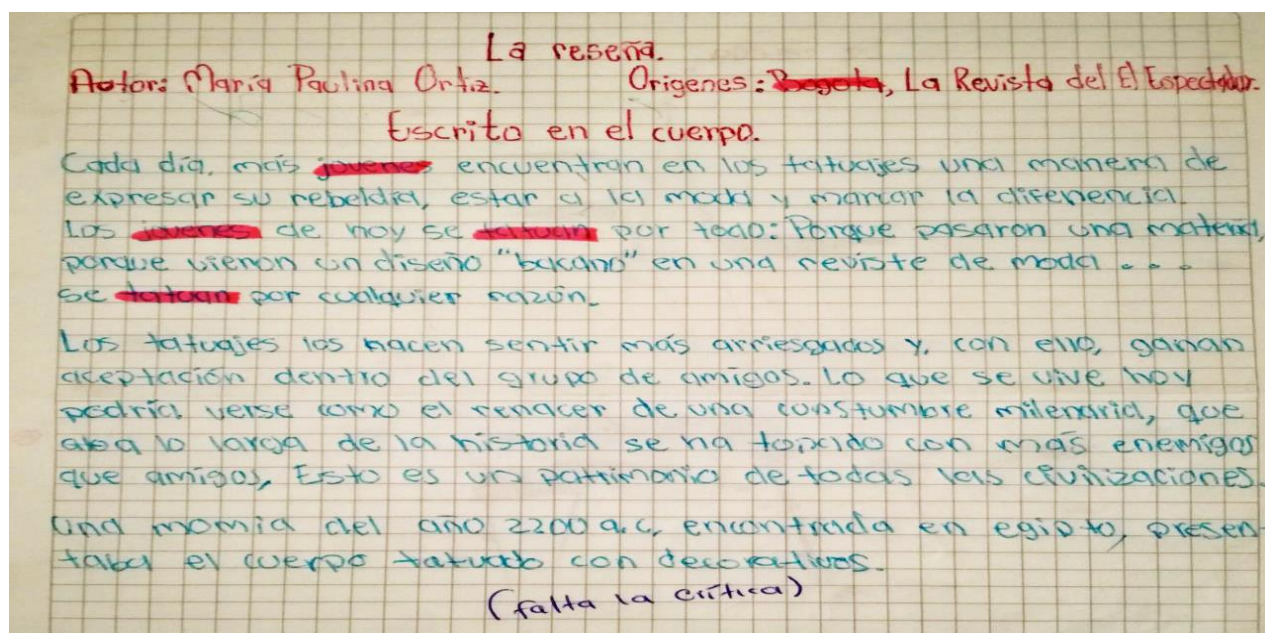 La reseña.
Autor: María Paulina Ortiz. Origenes: Bogota, La Revista del El Espectador.
Escrito en el cuerpo.
Cada día, más jovenes encuentran en los tatuajes una manera de
expresar su rebeldía, estar a la moda y marcar la diferencia.
Los jovenes de hoy se tatuan por todo: Porque pasaron una materia,
porque vieron un diseño "bacano" en una reviste de moda ...
se tatuan por cualquier razón.
Los tatuajes los hacen sentir más arriesgados y, con ello, ganan
aceptación dentro del grupo de amigos. Lo que se vive hoy
podría verse como el renacer de una constumbre milenaria, que
a lo larga de la historia se ha topado con más enemigos
que amigos, Esto es un patrimonio de todas las civilizaciones.
Una momia del año 2200 a.c, encontrada en egipto, presen-
taba el cuerpo tatuado con decorativos.
(falta la crítica)